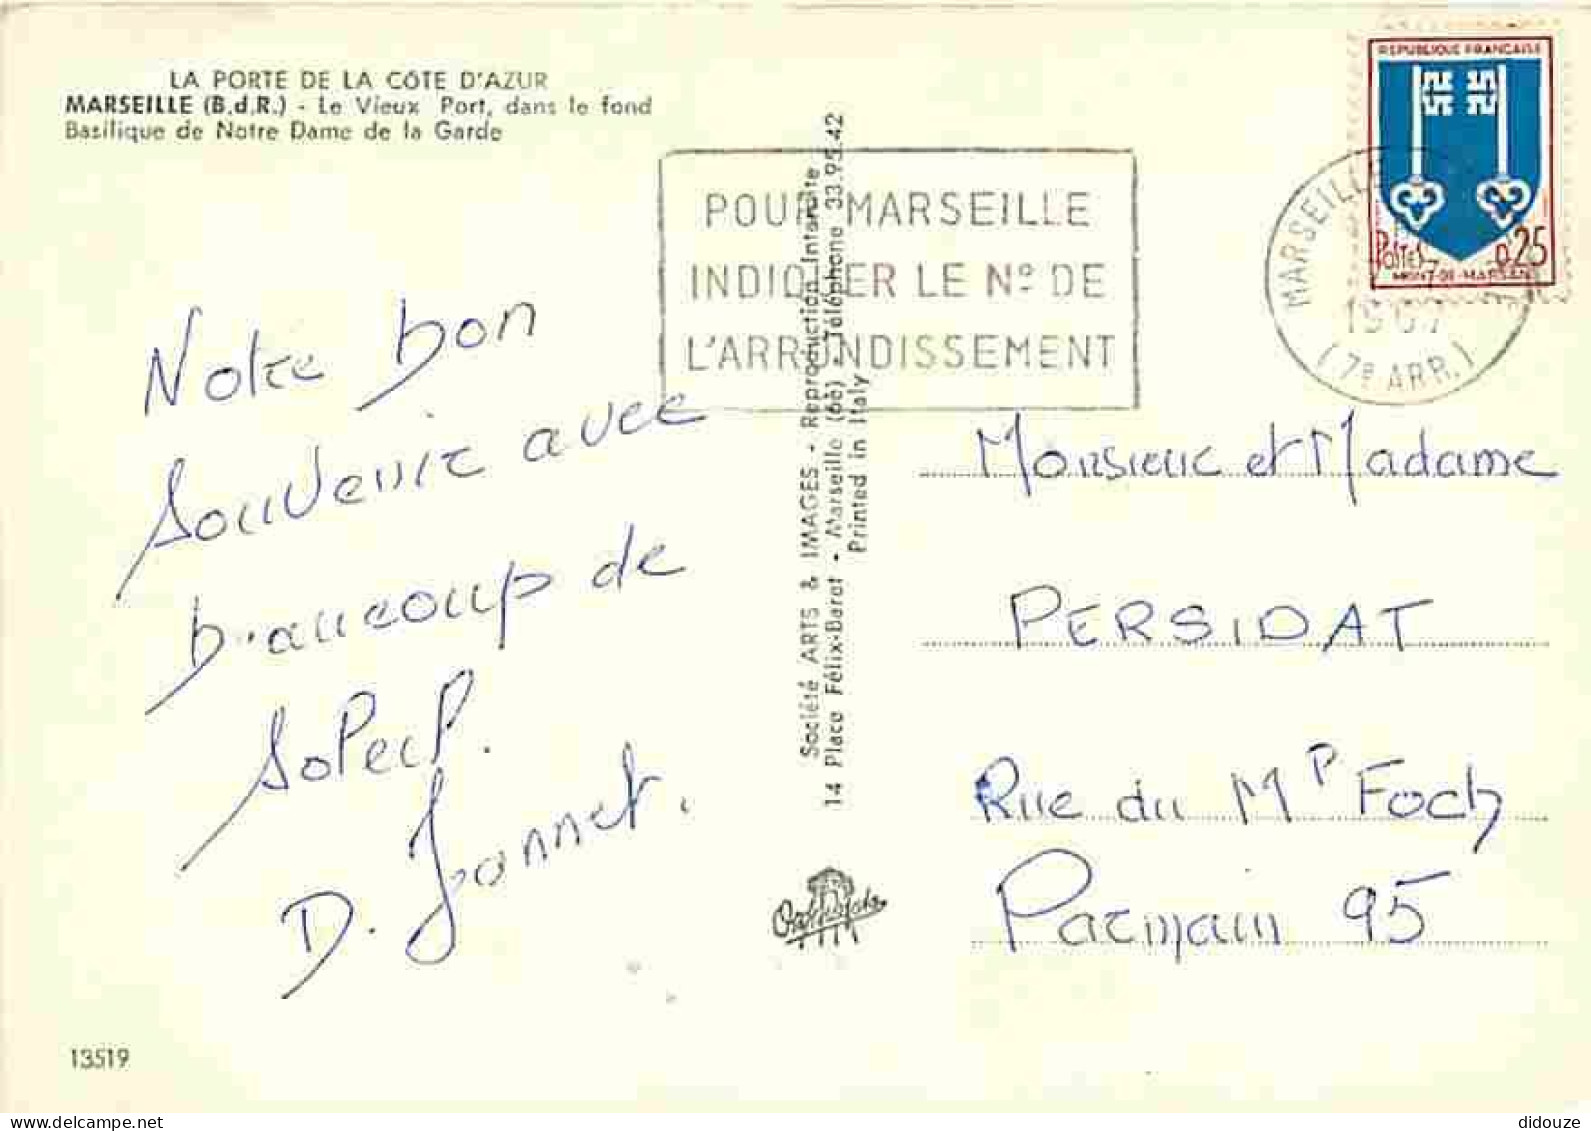 LA PORTE DE LA CÔTE D'AZUR
MARSEILLE (B.d.R.) - Le Vieux Port, dans le fond
Basilique de Notre Dame de la Garde
REPUBLIQUE FRANÇAISE
POSTES 0,25
MONT-DE-MARSAN
POUR MARSEILLE
INDIQUER LE Nº DE
L'ARRONDISSEMENT
MARSEILLE
1967
(7e ARR.)
Notre bon
souvenir avec
beaucoup de
soleil.
D. Jonnet.
Société ARTS & IMAGES - Reproduction Interdite
14 Place Félix-Baret - Marseille (6e) - Téléphone 33.95.42
Printed in Italy
Monsieur et Madame
PERSIDAT
Rue du Mal Foch
Parmain 95
13519
delcampe.net
didouze